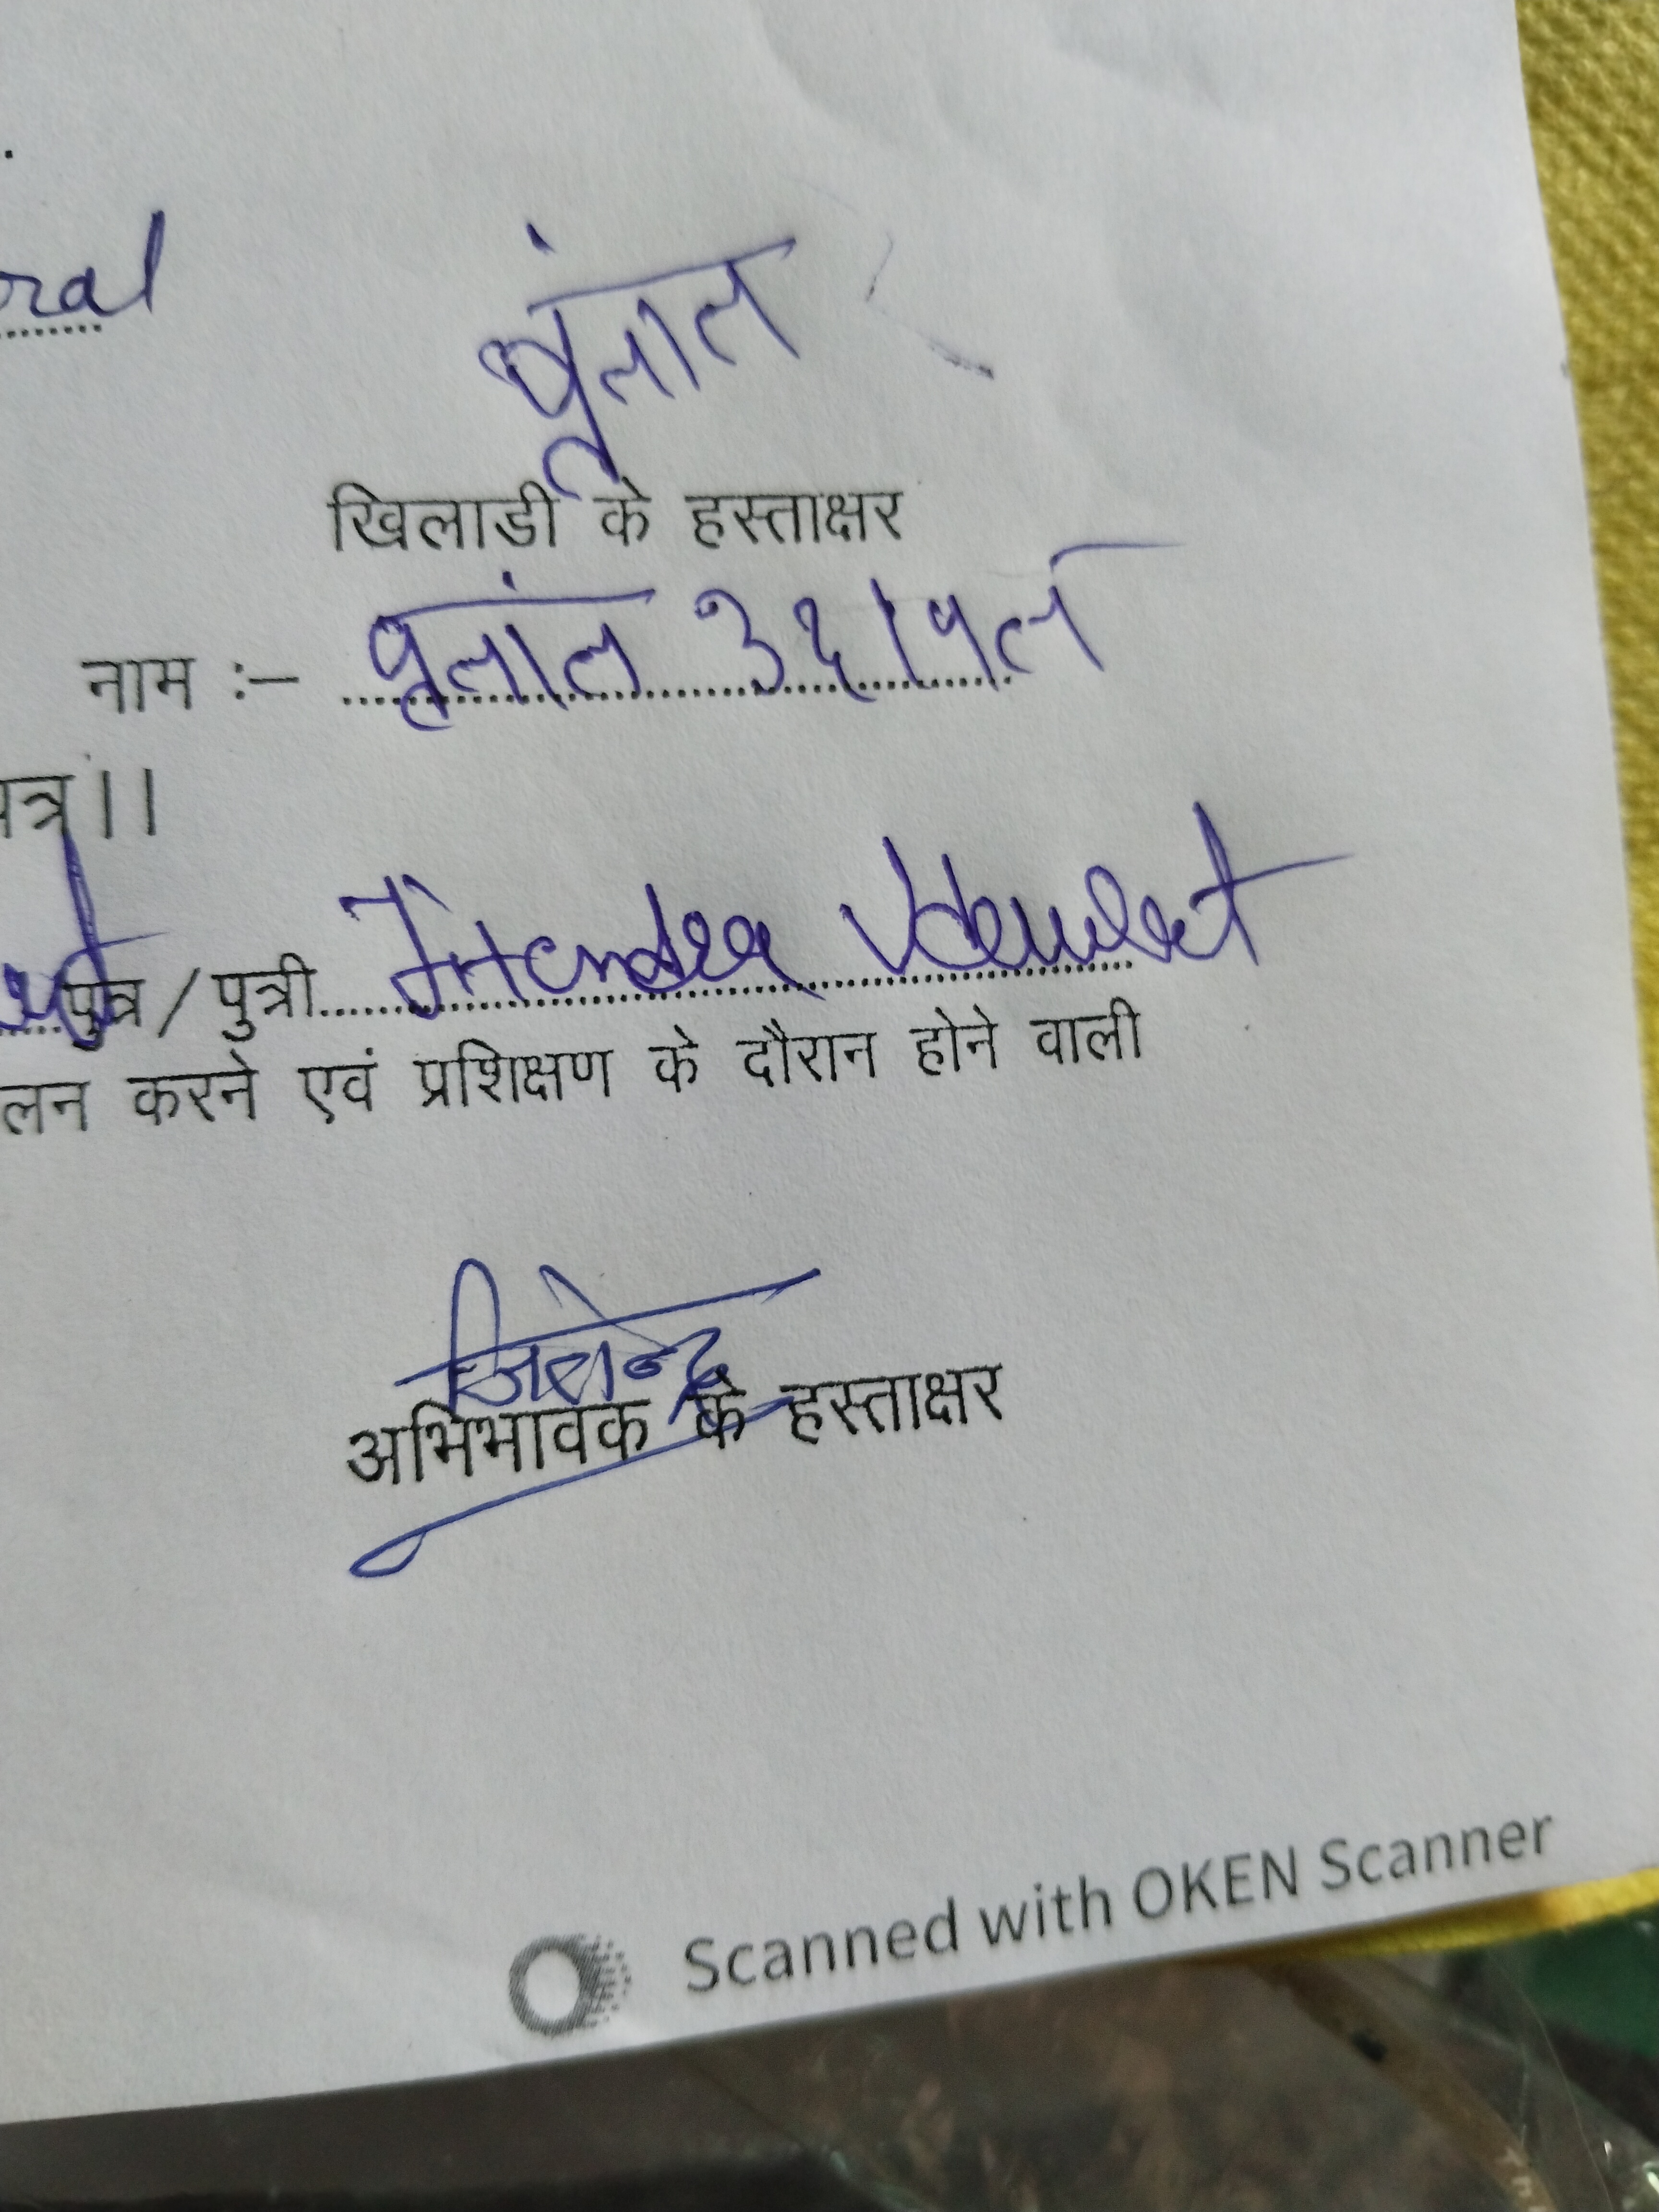 वृतांत
खिलाडी के हस्ताक्षर
नाम :- वृतांत
पत्र।।
पुत्र / पुत्री Jitendra
लन करने एवं प्रशिक्षण के दौरान होने वाली
जितेन्द्र
अभिभावक के हस्ताक्षर
Scanned with OKEN Scanner